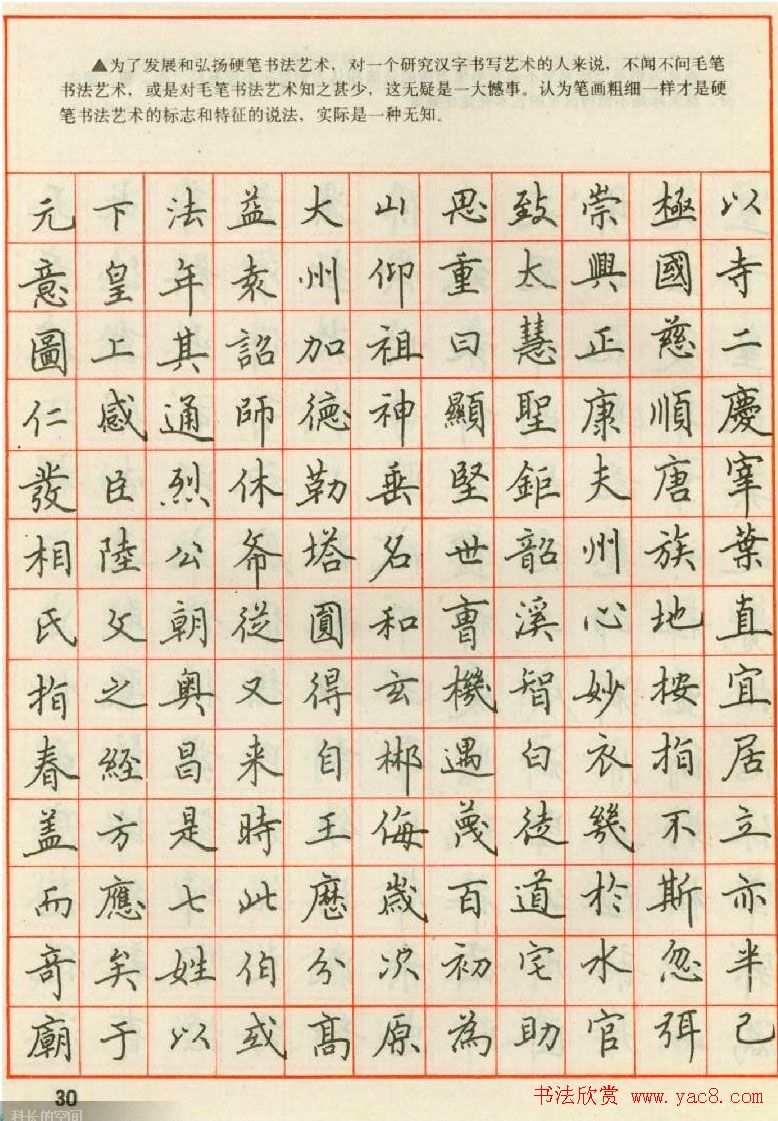 ▲为了发展和弘扬硬笔书法艺术，对一个研究汉字书写艺术的人来说，不闻不问毛笔
书法艺术，或是对毛笔书法艺术知之甚少，这无疑是一大憾事。认为笔画粗细一样才是硬
笔书法艺术的标志和特征的说法，实际是一种无知。
以寺二慶宰葉直宜居立亦半己
極國慈順唐族地按指不斯忽弭
崇興正康夫州心妙衣幾於水官
致太慧聖鉅韶溪智白徒道宅助
思重曰顯堅世曹機遇蔑百初為
山仰祖神垂名和玄郴侮歲次原
大州加德勒塔圓得自王曆分高
益袁詔師休從又来時此伯或
法年其通烈公朝奥昌是七姓以
下皇上感臣陸文之經方應矣于
元意圖仁發相氏指春盖而奇廟
30
书法欣赏 www.yac8.com
科长的空间